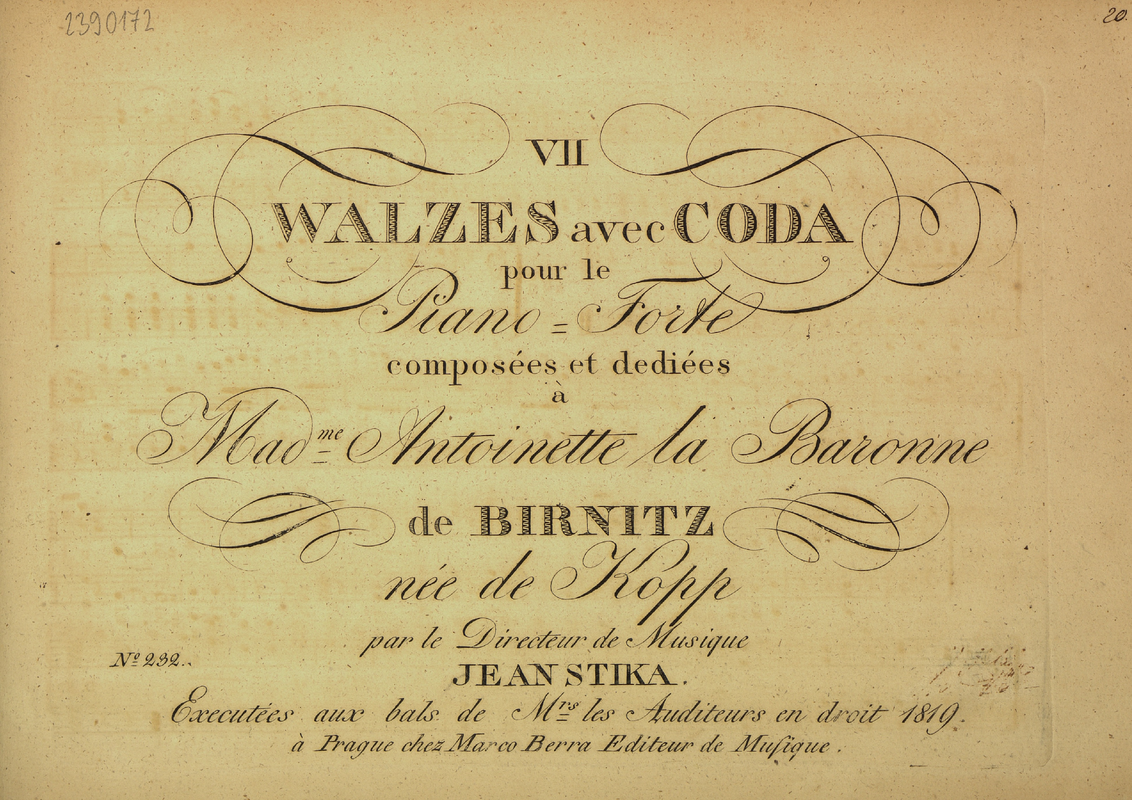 2390172
20.
VII
WALZES avec CODA
pour le
Piano = Forte
composées et dediées
à
Mad.me Antoinette la Baronne
de BIRNITZ
née de Kopp
par le Directeur de Musique
No 232.
JEAN STIKA.
Executées aux bals de Mrs les Auditeurs en droit 1819.
à Prague chez Marco Berra Editeur de Muſique.